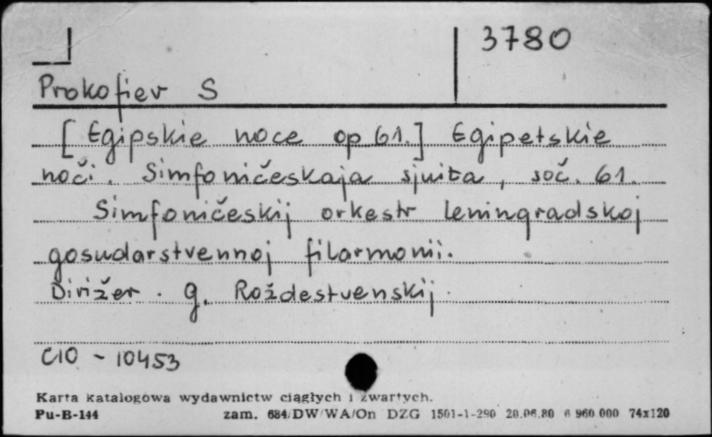 3780
Prokofiev S
[Egipskie noce op 61.] Egipetskie
noči. Simfoničeskaja sjuita, soč. 61.
Simfoničeskij orkestr leningradskoj
gosudarstvennoj filarmonii.
Dirižer. G. Roždestvenskij.
C10 - 10453
Karta katalogowa wydawnictw ciągłych i zwartych.
Pu-B-144 zam. 684/DW/WA/On DZG 1501-1-290 20.06.80 6 960 000 74x120